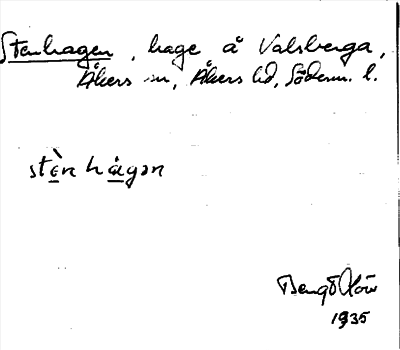 Stenhagen, hage å Valsberga,
Åkers sn, Åkers hd, Söderm. l.
stèn hågən
Bengt Löw
1935